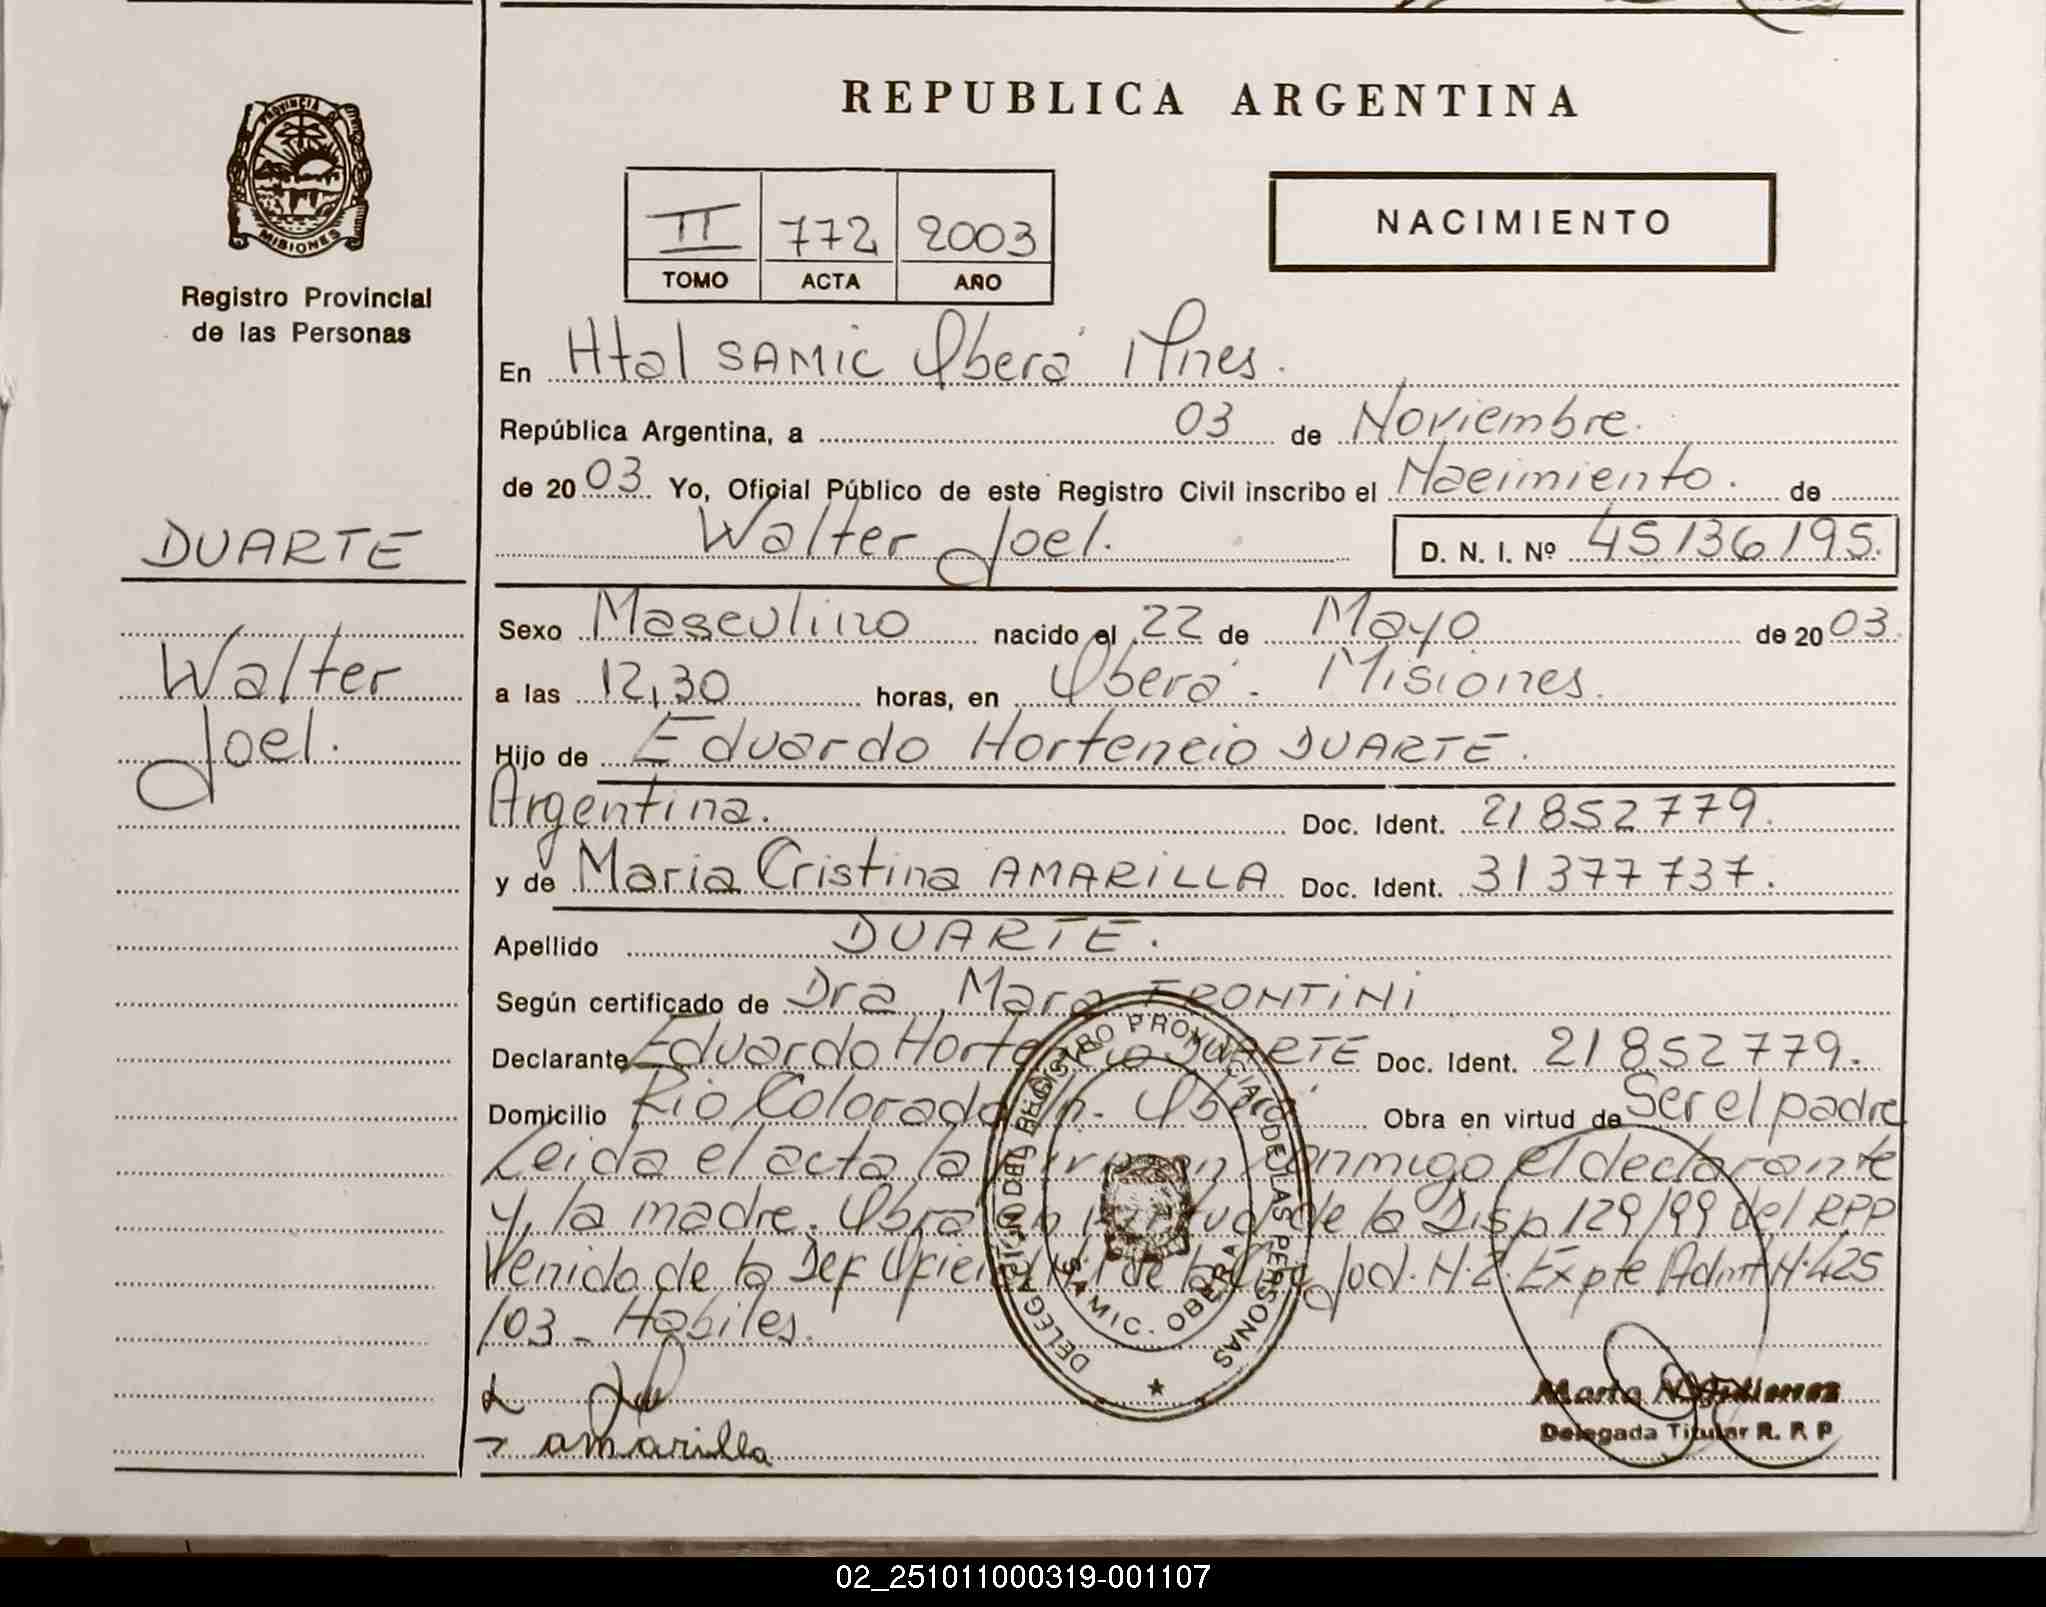 REPUBLICA ARGENTINA
PROVINCIA
MISIONES
Registro Provincial
de las Personas
II 772 2003
TOMO ACTA AÑO
NACIMIENTO
En Htal SAMIC Oberá Mnes.
República Argentina, a 03 de Noviembre.
de 2003 Yo, Oficial Público de este Registro Civil inscribo el Nacimiento. de
Walter Joel. D. N. I. Nº 45136195.
DUARTE
Walter
Joel.
Sexo Masculino nacido el 22 de Mayo de 2003.
a las 12,30 horas, en Oberá. Misiones.
Hijo de Eduardo Hortencio DUARTE.
Argentina. Doc. Ident. 21852779.
y de Maria Cristina AMARILLA Doc. Ident. 31377737.
Apellido DUARTE.
Según certificado de Dra Mara FRONTINI
Declarante Eduardo Hortencio DUARTE Doc. Ident. 21852779.
Domicilio Rio Colorado Oberá Obra en virtud de Ser el padre
Leida el acta la firman conmigo el declarante
y la madre. Obra en virtud de la Disp 129/99 del RPP
Venido de la Def Oficial de la Jud. N.2. Expte Admt N.425
/03 _ Habiles.
amarilla
DELEGACION DEL REGISTRO PROVINCIAL DE LAS PERSONAS
SAMIC. OBERA
Delegada Titular R. P. P
02_251011000319-001107